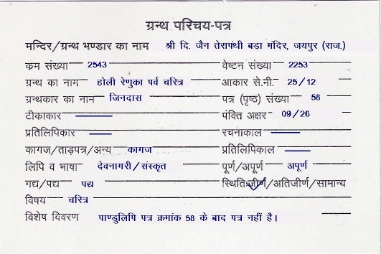 ग्रन्थ परिचय-पत्र
मन्दिर/ग्रन्थ भण्डार का नाम श्री दि. जैन तेरापंथी बडा मंदिर, जयपुर (राज.)
क्रम संख्या 2543 वेष्टन संख्या 2253
ग्रन्थ का नाम होली रेणुका पर्व चरित्र आकार से.मी. 25/12
ग्रन्थकार का नाम जिनदास पत्र (पृष्ठ) संख्या 58
टीकाकार पंक्ति अक्षर 09/26
प्रतिलिपिकार रचनाकाल
कागज/ताड़पत्र/अन्य कागज प्रतिलिपिकाल
लिपि व भाषा देवनागरी/संस्कृत पूर्ण/अपूर्ण अपूर्ण
गद्य/पद्य पद्य स्थिति-जीर्ण/अतिजीर्ण/सामान्य
विषय चरित्र
विशेष विवरण पाण्डुलिपि पत्र क्रमांक 58 के बाद पत्र नहीं है।